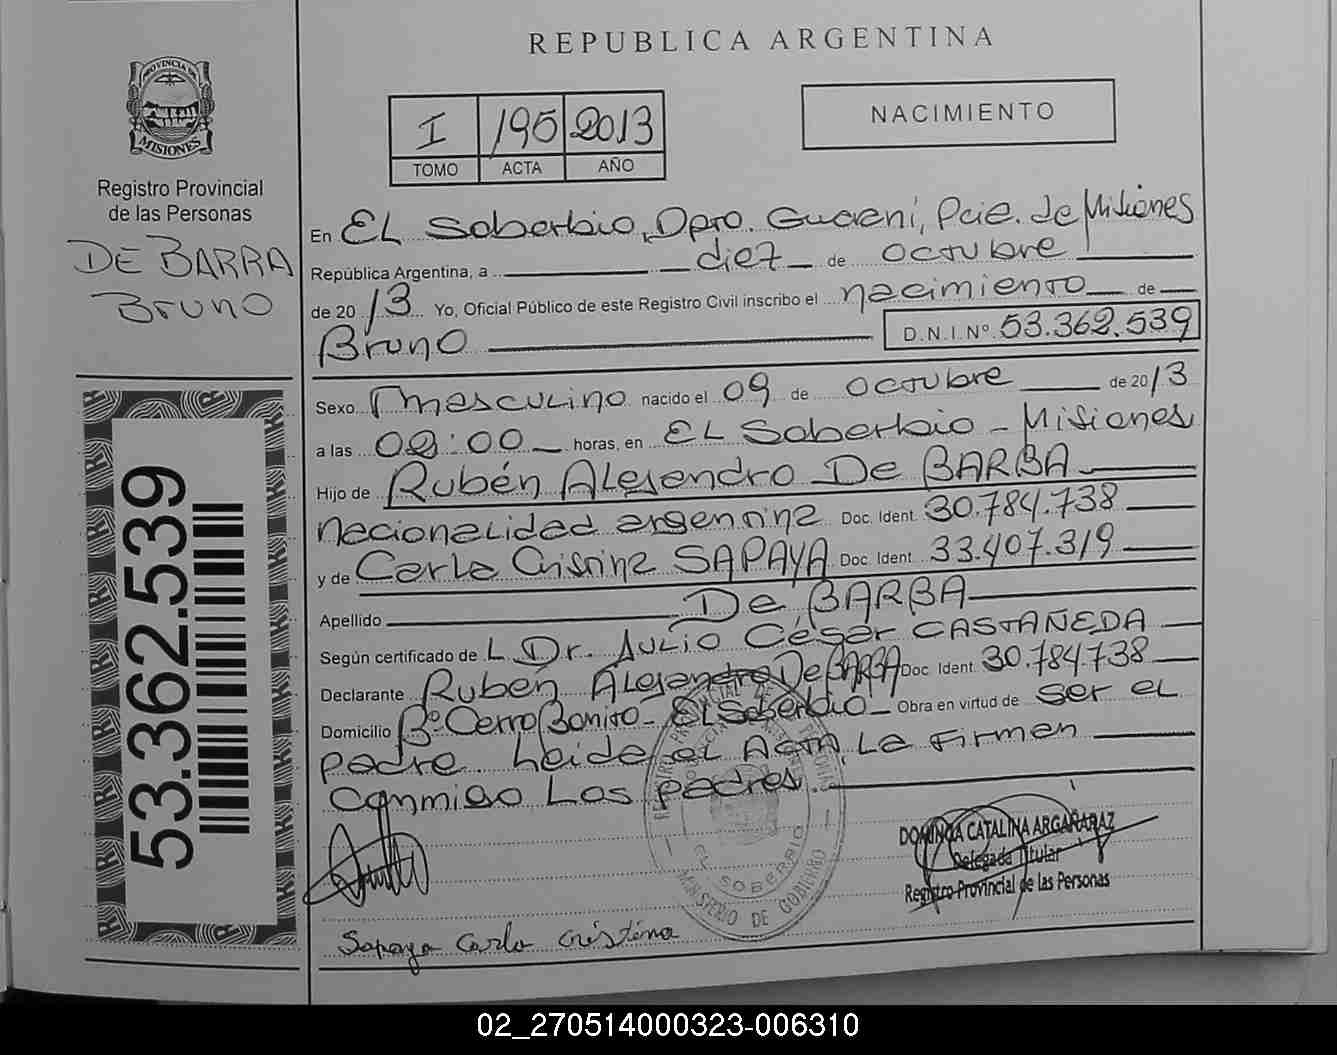 REPUBLICA ARGENTINA
PROVINCIA DE
MISIONES
Registro Provincial
de las Personas
DE BARRA
Bruno
53.362.539
I 195 2013
TOMO ACTA AÑO
NACIMIENTO
En EL Soberbio, Dpto. Guaraní, Pcie. de Misiones
República Argentina, a diez de octubre
de 2013 Yo, Oficial Público de este Registro Civil inscribo el nacimiento de
Bruno D.N.I.Nº 53.362.539
Sexo masculino nacido el 09 de octubre de 2013
a las 09:00 horas, en EL Soberbio - Misiones
Hijo de Rubén Alejandro De BARBA
nacionalidad argentina Doc. Ident. 30.784.738
y de Carla Cristina SAPAYA Doc. Ident. 33.407.319
Apellido De BARBA
Según certificado de L Dr. Julio César CASTAÑEDA
Declarante Rubén Alejandro De BARBA Doc. Ident. 30.784.738
Domicilio Bº Cerro Bonito - El Soberbio - Obra en virtud de ser el
padre. Leida el Acta, La Firman
conmigo Los padres.
EL SOBERBIO
MINISTERIO DE GOBIERNO
DOMINGA CATALINA ARGAÑARAZ
Delegada Titular
Registro Provincial de las Personas
Sapaya Carla Cristina
02_270514000323-006310